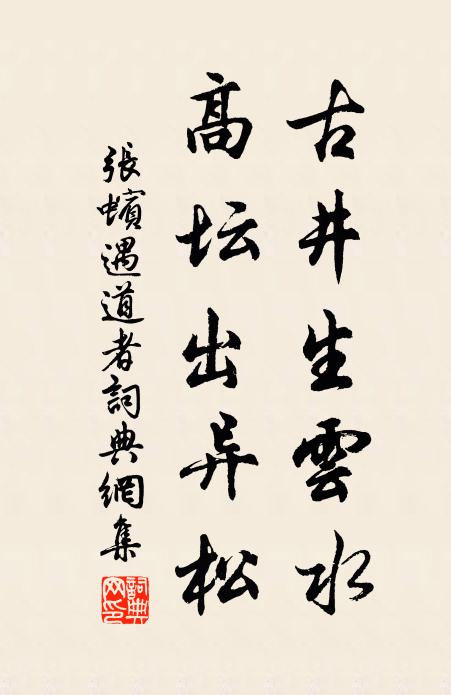 古井生雲水
高坛出异松
張蠙遇道者詞典網集
詞典网印